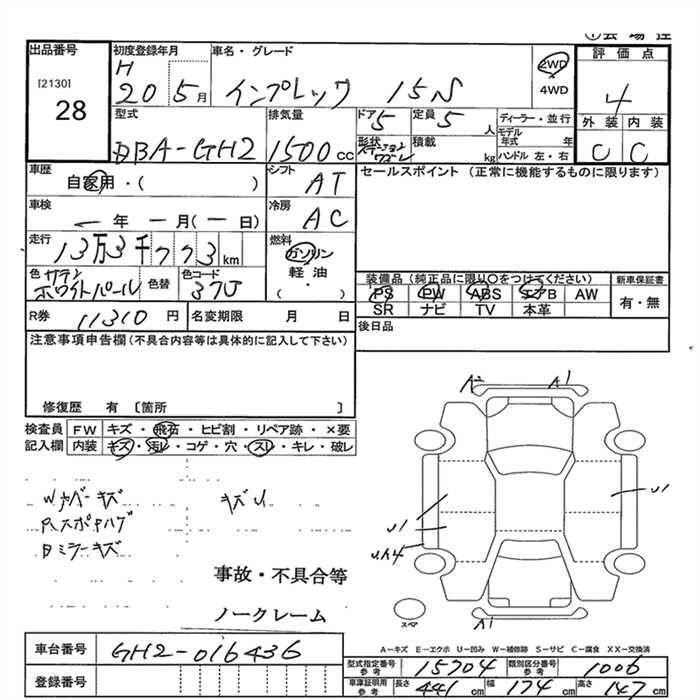 出品番号
[2130]
28
初度登録年月
H
20 5月
車名・グレード
インプレッサ 15S
2WD
4WD
評価点
4
外装 内装
C C
型式
DBA-GH2
排気量
1500cc
ドア 5
定員 5人
形状 ステーションワゴン
積載 kg
ディーラー・並行
モデル年式 年
ハンドル 左・右
車歴
自家用・( )
シフト
AT
セールスポイント(正常に機能するものに限ります)
車検
年 月( 日)
冷房
AC
走行
13万3千773km
燃料
ガソリン
軽油
( )
色 サテンホワイトパール
色替
色コード
37J
装備品(純正品に限り○をつけてください)
PS PW ABS エアB AW
SR ナビ TV 本革
新車保証書
有・無
R券 11310円
名変期限 月 日
後日品
注意事項申告欄(不具合内容等は具体的に記入して下さい)
修復歴 有〔箇所 〕
検査員記入欄
FW キズ・飛石・ヒビ割・リペア跡・×要
内装 キズ・汚レ・コゲ・穴・スレ・キレ・破レ
Wカバーキズ
Rスポハゲ
Bミラーキズ
キズU
事故・不具合等
ノークレーム
A2 A1
U1
U1
UA4
A1
スペア
A-キズ E-エクボ U-凹み W-補修跡 S-サビ C-腐食 XX-交換済
車台番号
GH2-016436
登録番号
型式指定番号 参考 15704
類別区分番号 参考 1006
車庫証明用 参考 長さ 441cm 幅 174cm 高さ 147cm